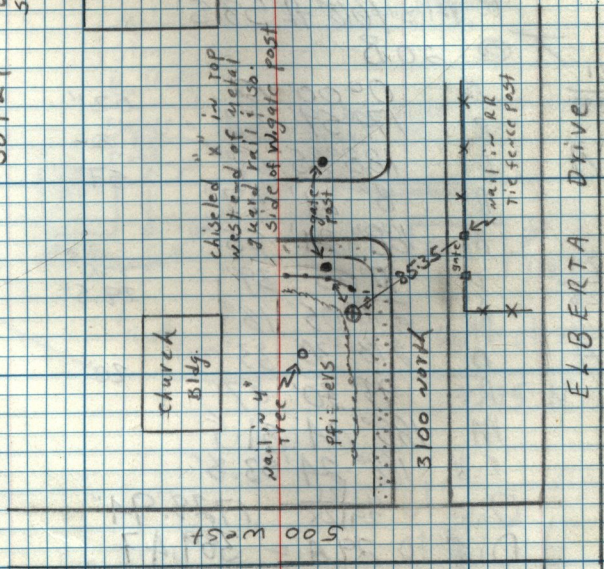 chiseled "x" in top
west end of metal
guard rail : so.
side of W. gate post
gate
post
Church
Bldg.
Nail in 4"
Tree
Pfitzers
85.35
gate
Nail in RR
Tie fence post
3100 North
ELBERTA Drive
500 West